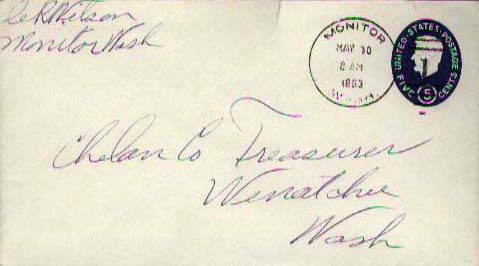 Wilson
Monitor Wash
MONITOR
MAY 10
8 AM
1963
WASH.
UNITED·STATES·POSTAGE
FIVE 5 CENTS
Chelan Co Treasurer
Wenatchee
Wash